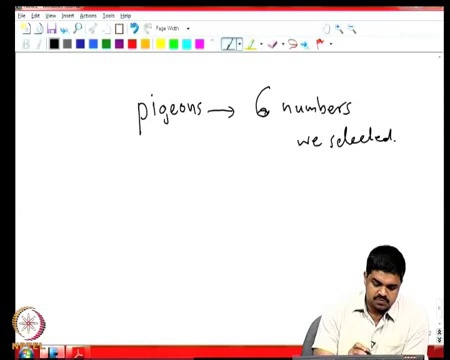 File Edit View Insert Actions Tools Help
Page Width
pigeons → 6 numbers
we selected.